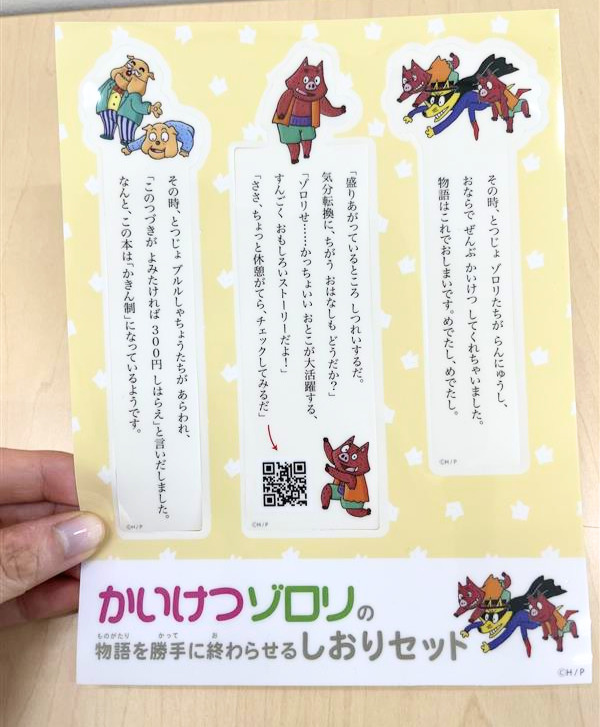 その時、とつじょ ゾロリたちが らんにゅうし、
おならで ぜんぶ かいけつ してくれちゃいました。
物語はこれでおしまいです。めでたし、めでたし。
©H/P
「盛りあがっているところ しつれいするだ。
気分転換に、ちがう おはなしも どうだか?」
「ゾロリせ……かっちょいい おとこが大活躍する、
すんごく おもしろいストーリーだよ!」
「ささ、ちょっと休憩がてら、チェックしてみるだ」
©H/P
その時、とつじょ ブルルしゃちょうたちが あらわれ、
「このつづきが よみたければ 300円 しはらえ」と言いだしました。
なんと、この本は「かきん制」になっているようです。
©H/P
かいけつゾロリの
物語を勝手に終わらせるしおりセット
ものがたり かって お
©H/P